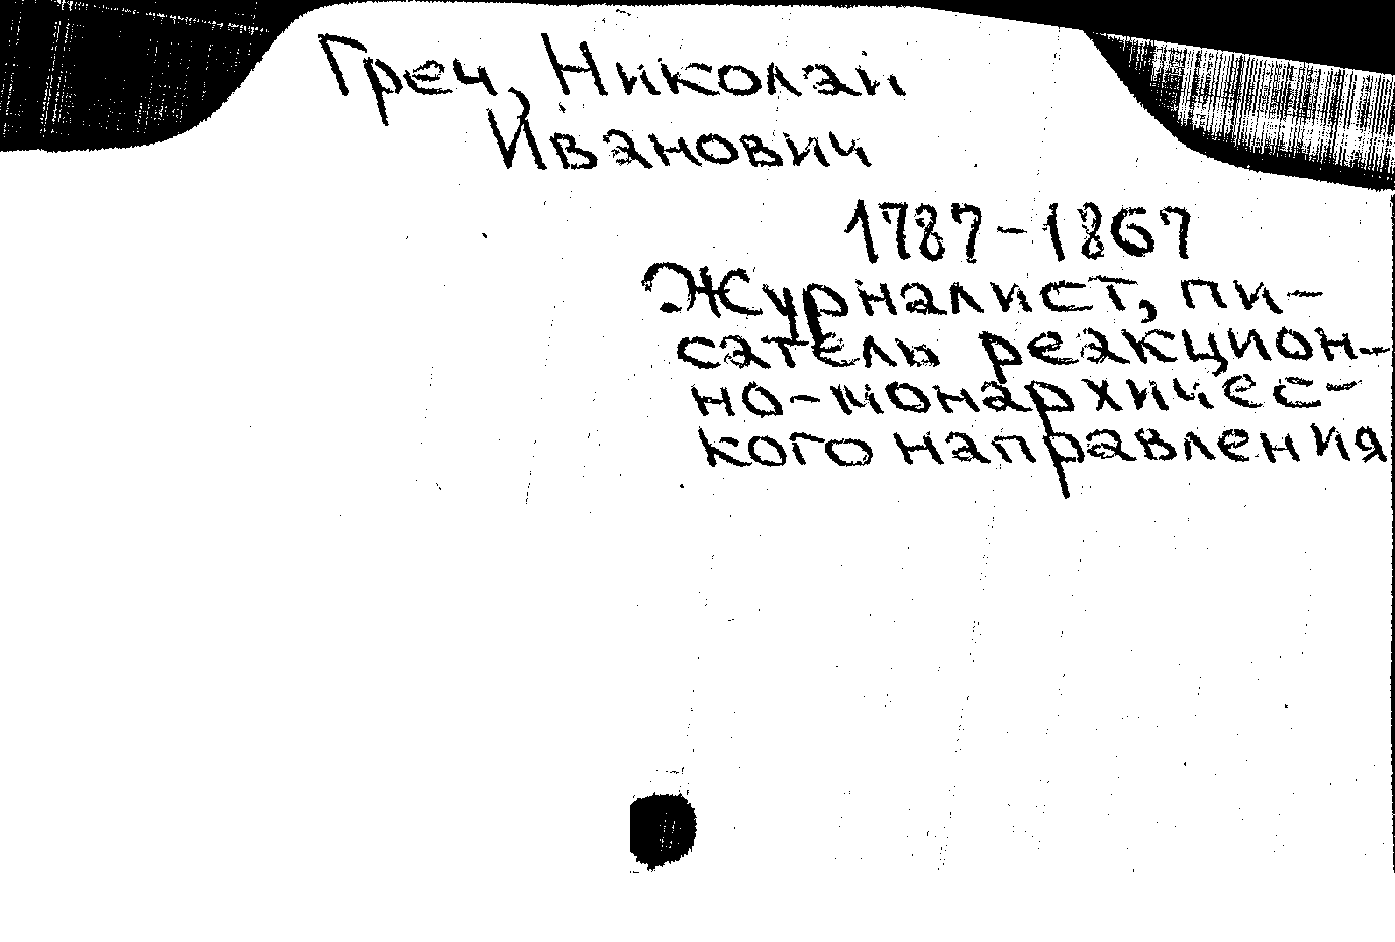 Греч, Николай
Иванович
1787-1867
Журналист, пи-
сатель реакцион-
но-монархичес-
кого направления